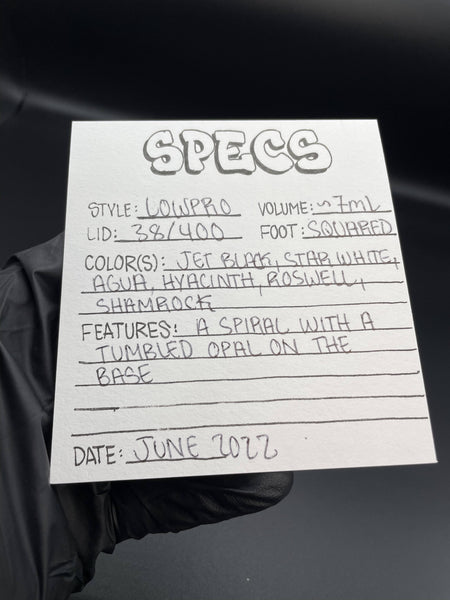 SPECS
STYLE: LOWPRO VOLUME: ~7mL
LID: 38/400 FOOT: SQUARED
COLOR(S): JET BLACK, STAR WHITE,
AGUA, HYACINTH, ROSWELL,
SHAMROCK
FEATURES: A SPIRAL WITH A
TUMBLED OPAL ON THE
BASE
DATE: JUNE 2022